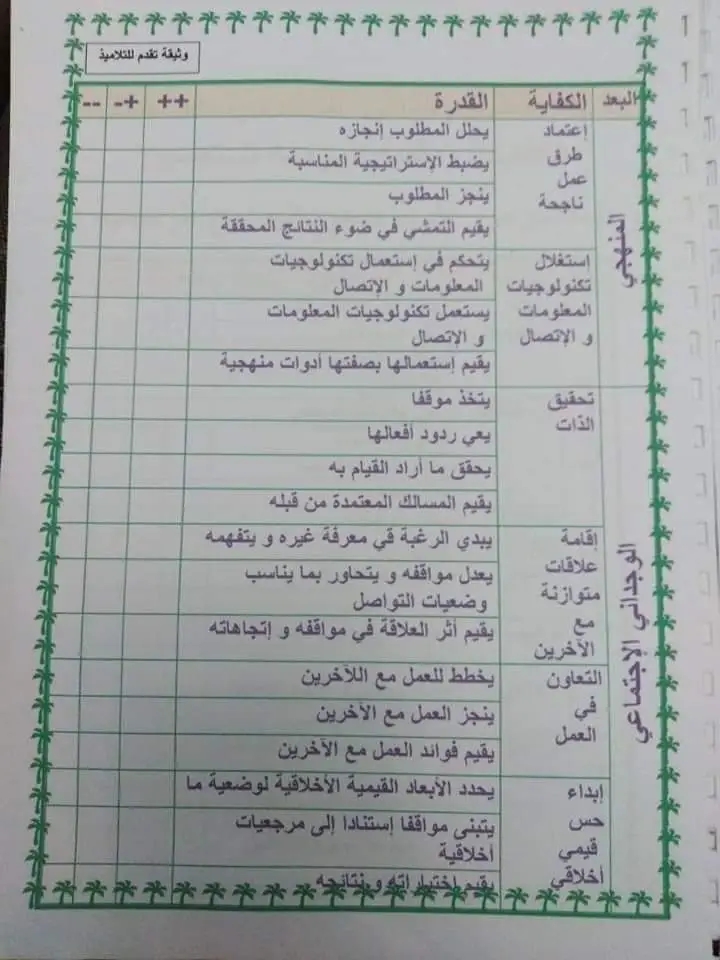 وثيقة تقدم للتلاميذ
البعد الكفاية القدرة ++ +- --
المنهجي
إعتماد
طرق
عمل
ناجحة
يحلل المطلوب إنجازه
يضبط الإستراتيجية المناسبة
ينجز المطلوب
يقيم التمشي في ضوء النتائج المحققة
إستغلال
تكنولوجيات
المعلومات
و الإتصال
يتحكم في إستعمال تكنولوجيات
المعلومات و الإتصال
يستعمل تكنولوجيات المعلومات
و الإتصال
يقيم إستعمالها بصفتها أدوات منهجية
الوجداني الإجتماعي
تحقيق
الذات
يتخذ موقفا
يعي ردود أفعالها
يحقق ما أراد القيام به
يقيم المسالك المعتمدة من قبله
إقامة
علاقات
متوازنة
مع
الآخرين
يبدي الرغبة قي معرفة غيره و يتفهمه
يعدل مواقفه و يتحاور بما يناسب
وضعيات التواصل
يقيم أثر العلاقة في مواقفه و إتجاهاته
التعاون
في
العمل
يخطط للعمل مع اللآخرين
ينجز العمل مع الآخرين
يقيم فوائد العمل مع الآخرين
إبداء
حس
قيمي
أخلاقي
يحدد الأبعاد القيمية الأخلاقية لوضعية ما
يتبنى مواقفا إستنادا إلى مرجعيات
أخلاقية
يقيم إختياراته و نتائجه